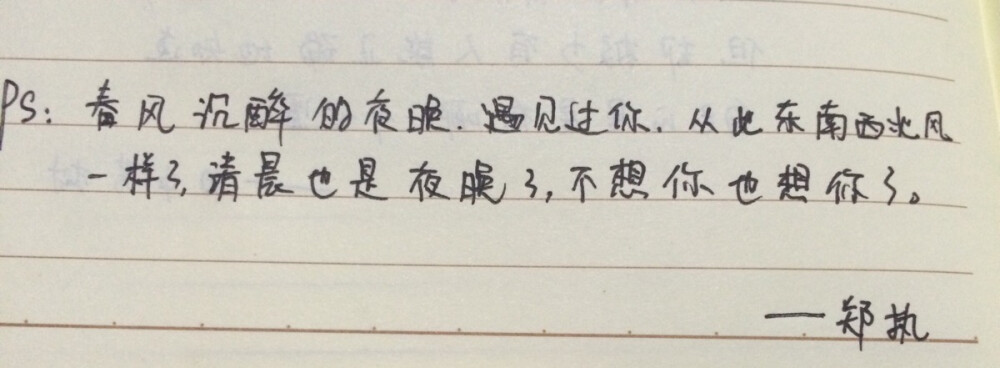 PS: 春风沉醉的夜晚.遇见过你.从此东南西北风
一样了,清晨也是夜晚了,不想你也想你了。
——郑执